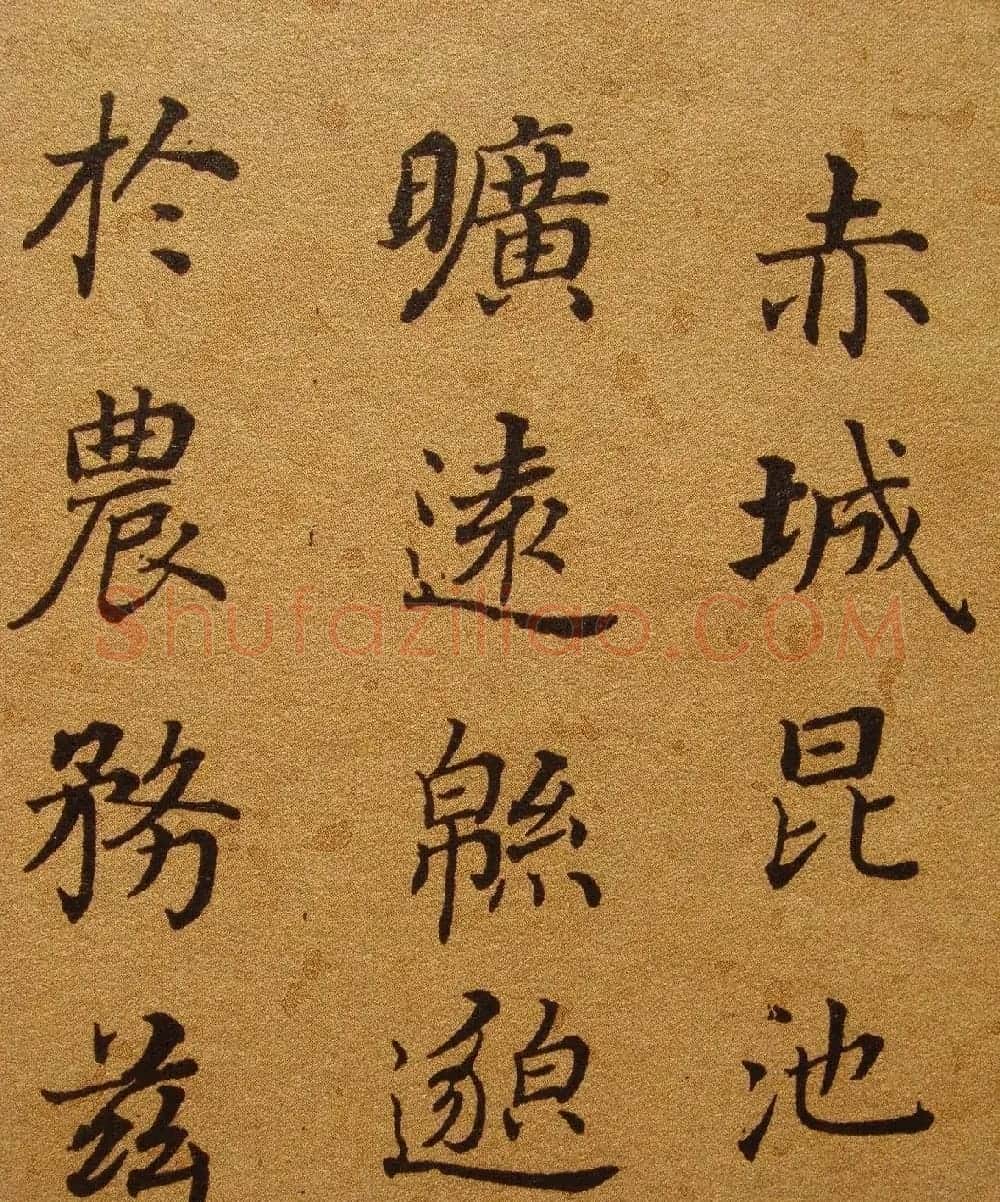 赤城昆池
曠遠緜邈
於農務茲
Shufaziliao.COM